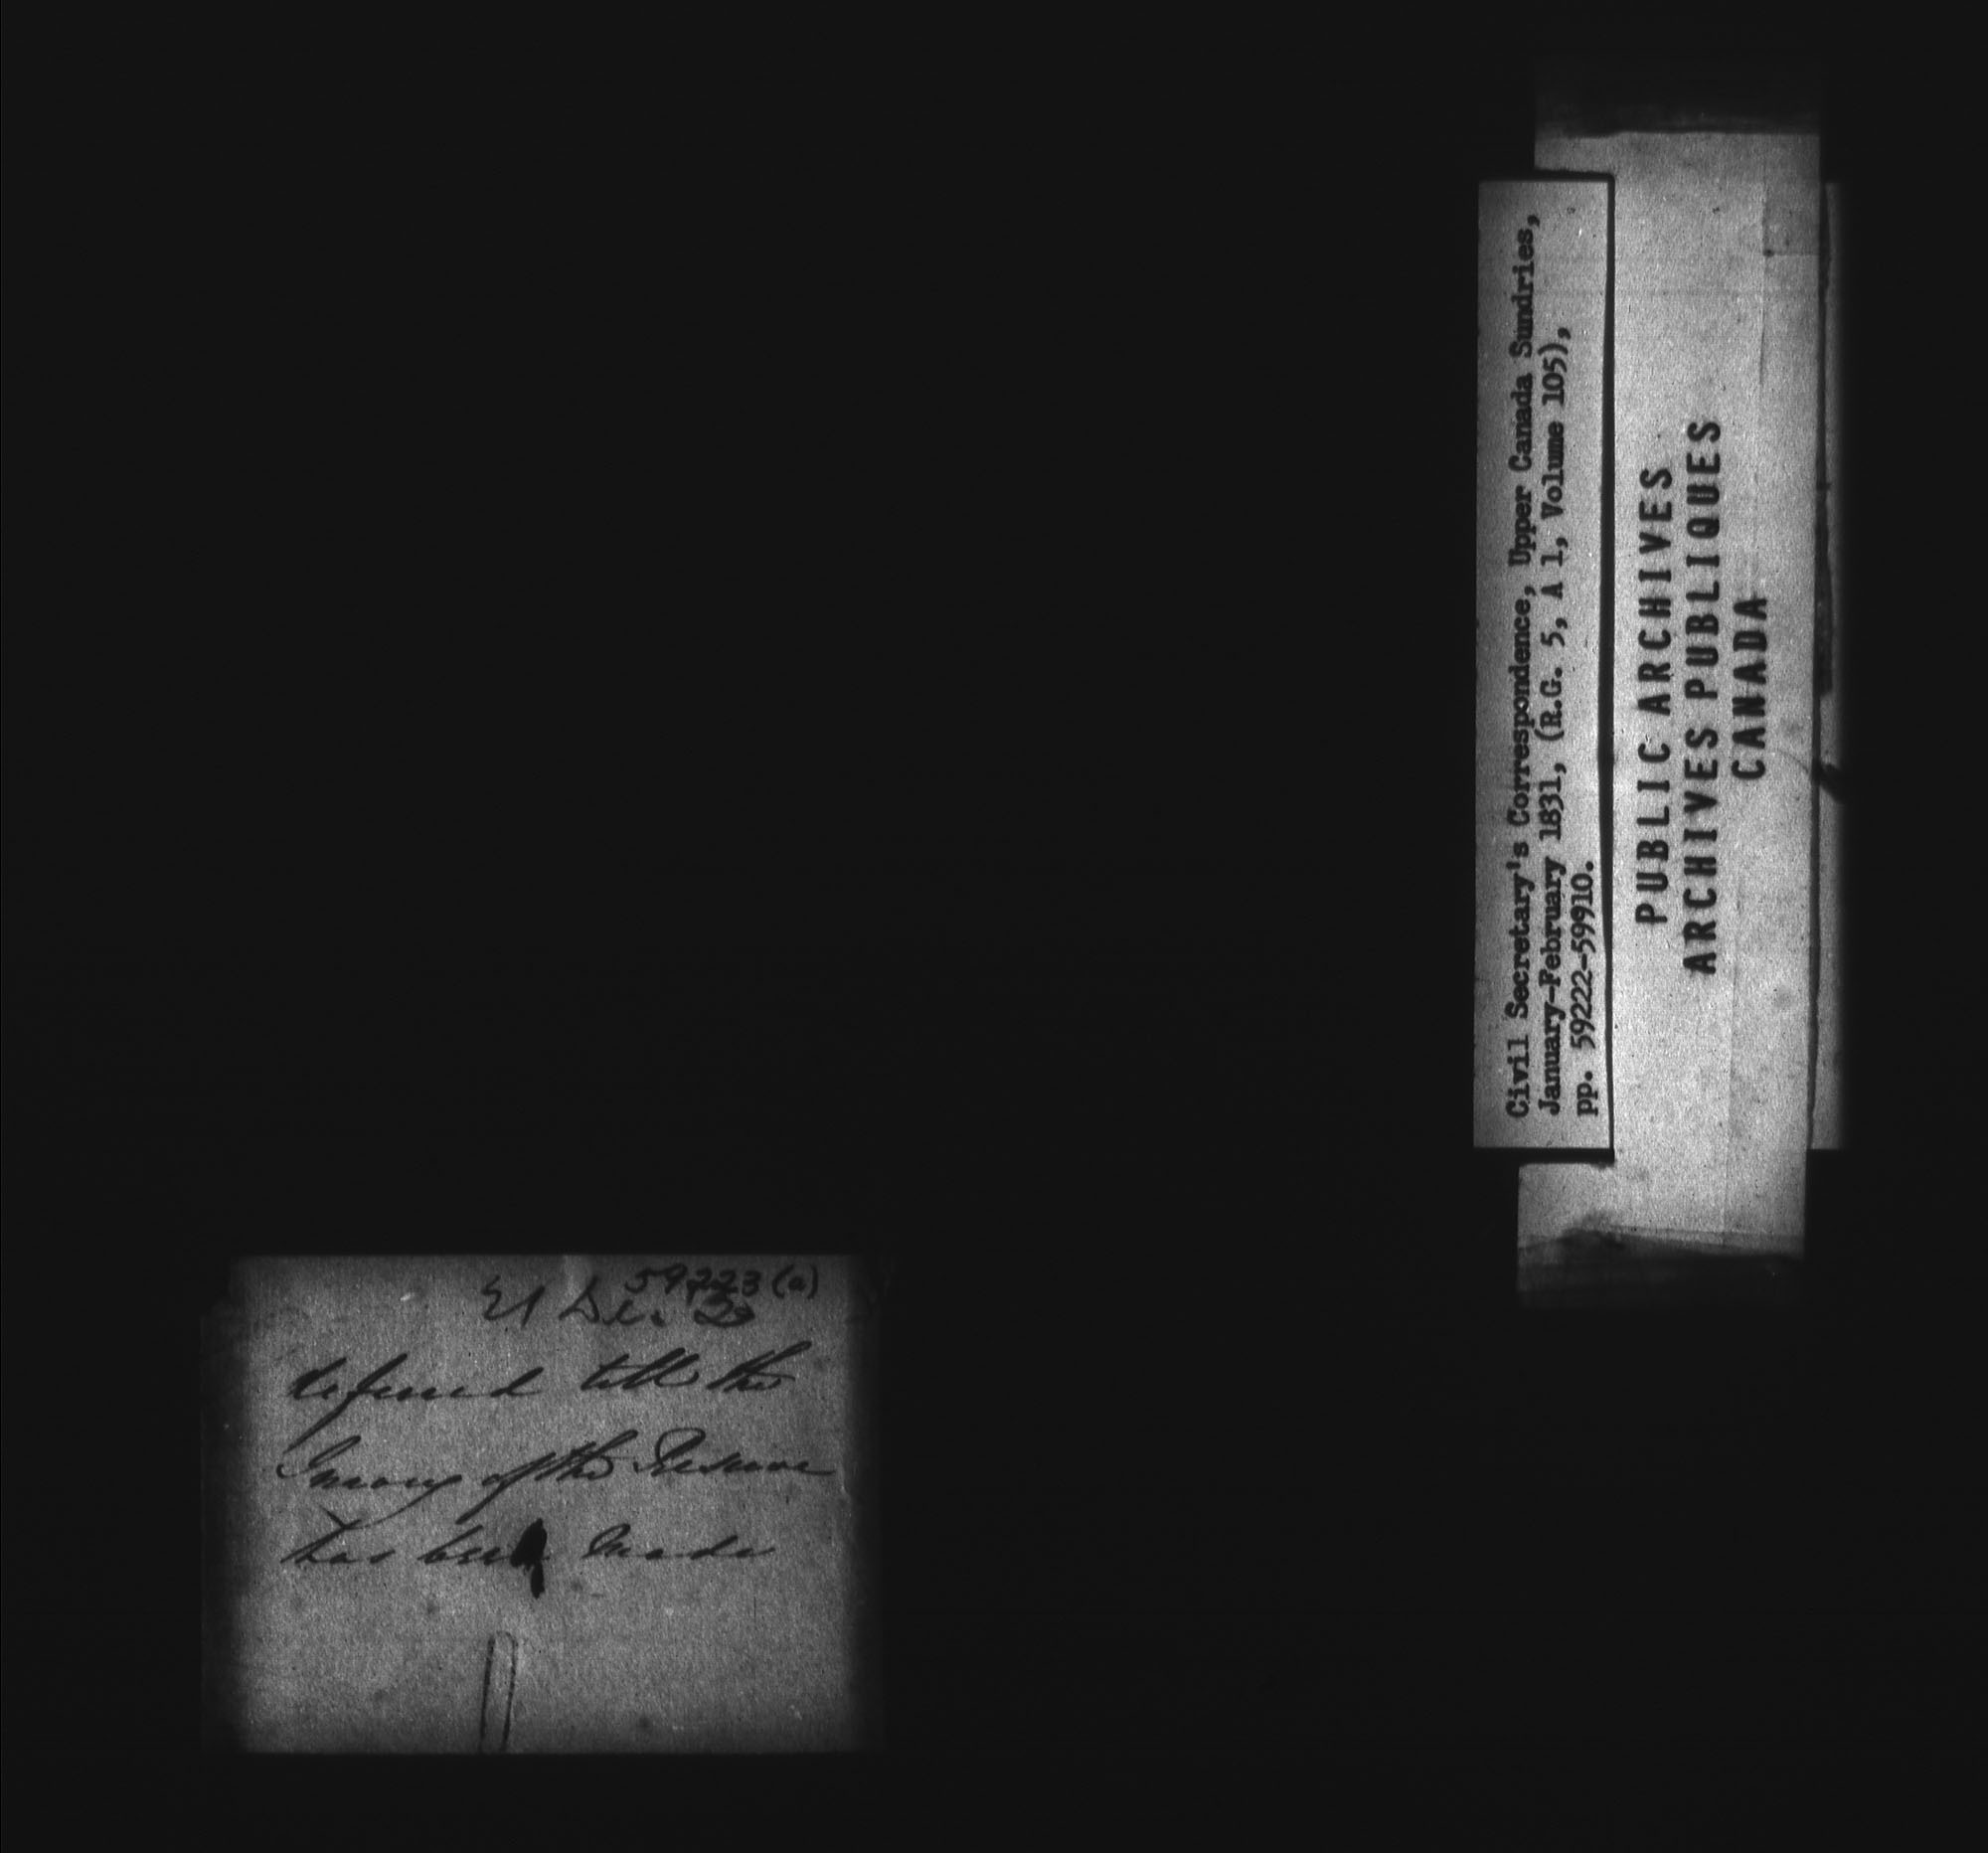 59223 (a)
21 Dec. 30
deferred till the
of the Reserve
has been made
Civil Secretary's Correspondence, Upper Canada Sundries,
January-February 1831, (R.G. 5, A 1, Volume 105),
pp. 59222-59910.
PUBLIC ARCHIVES
ARCHIVES PUBLIQUES
CANADA